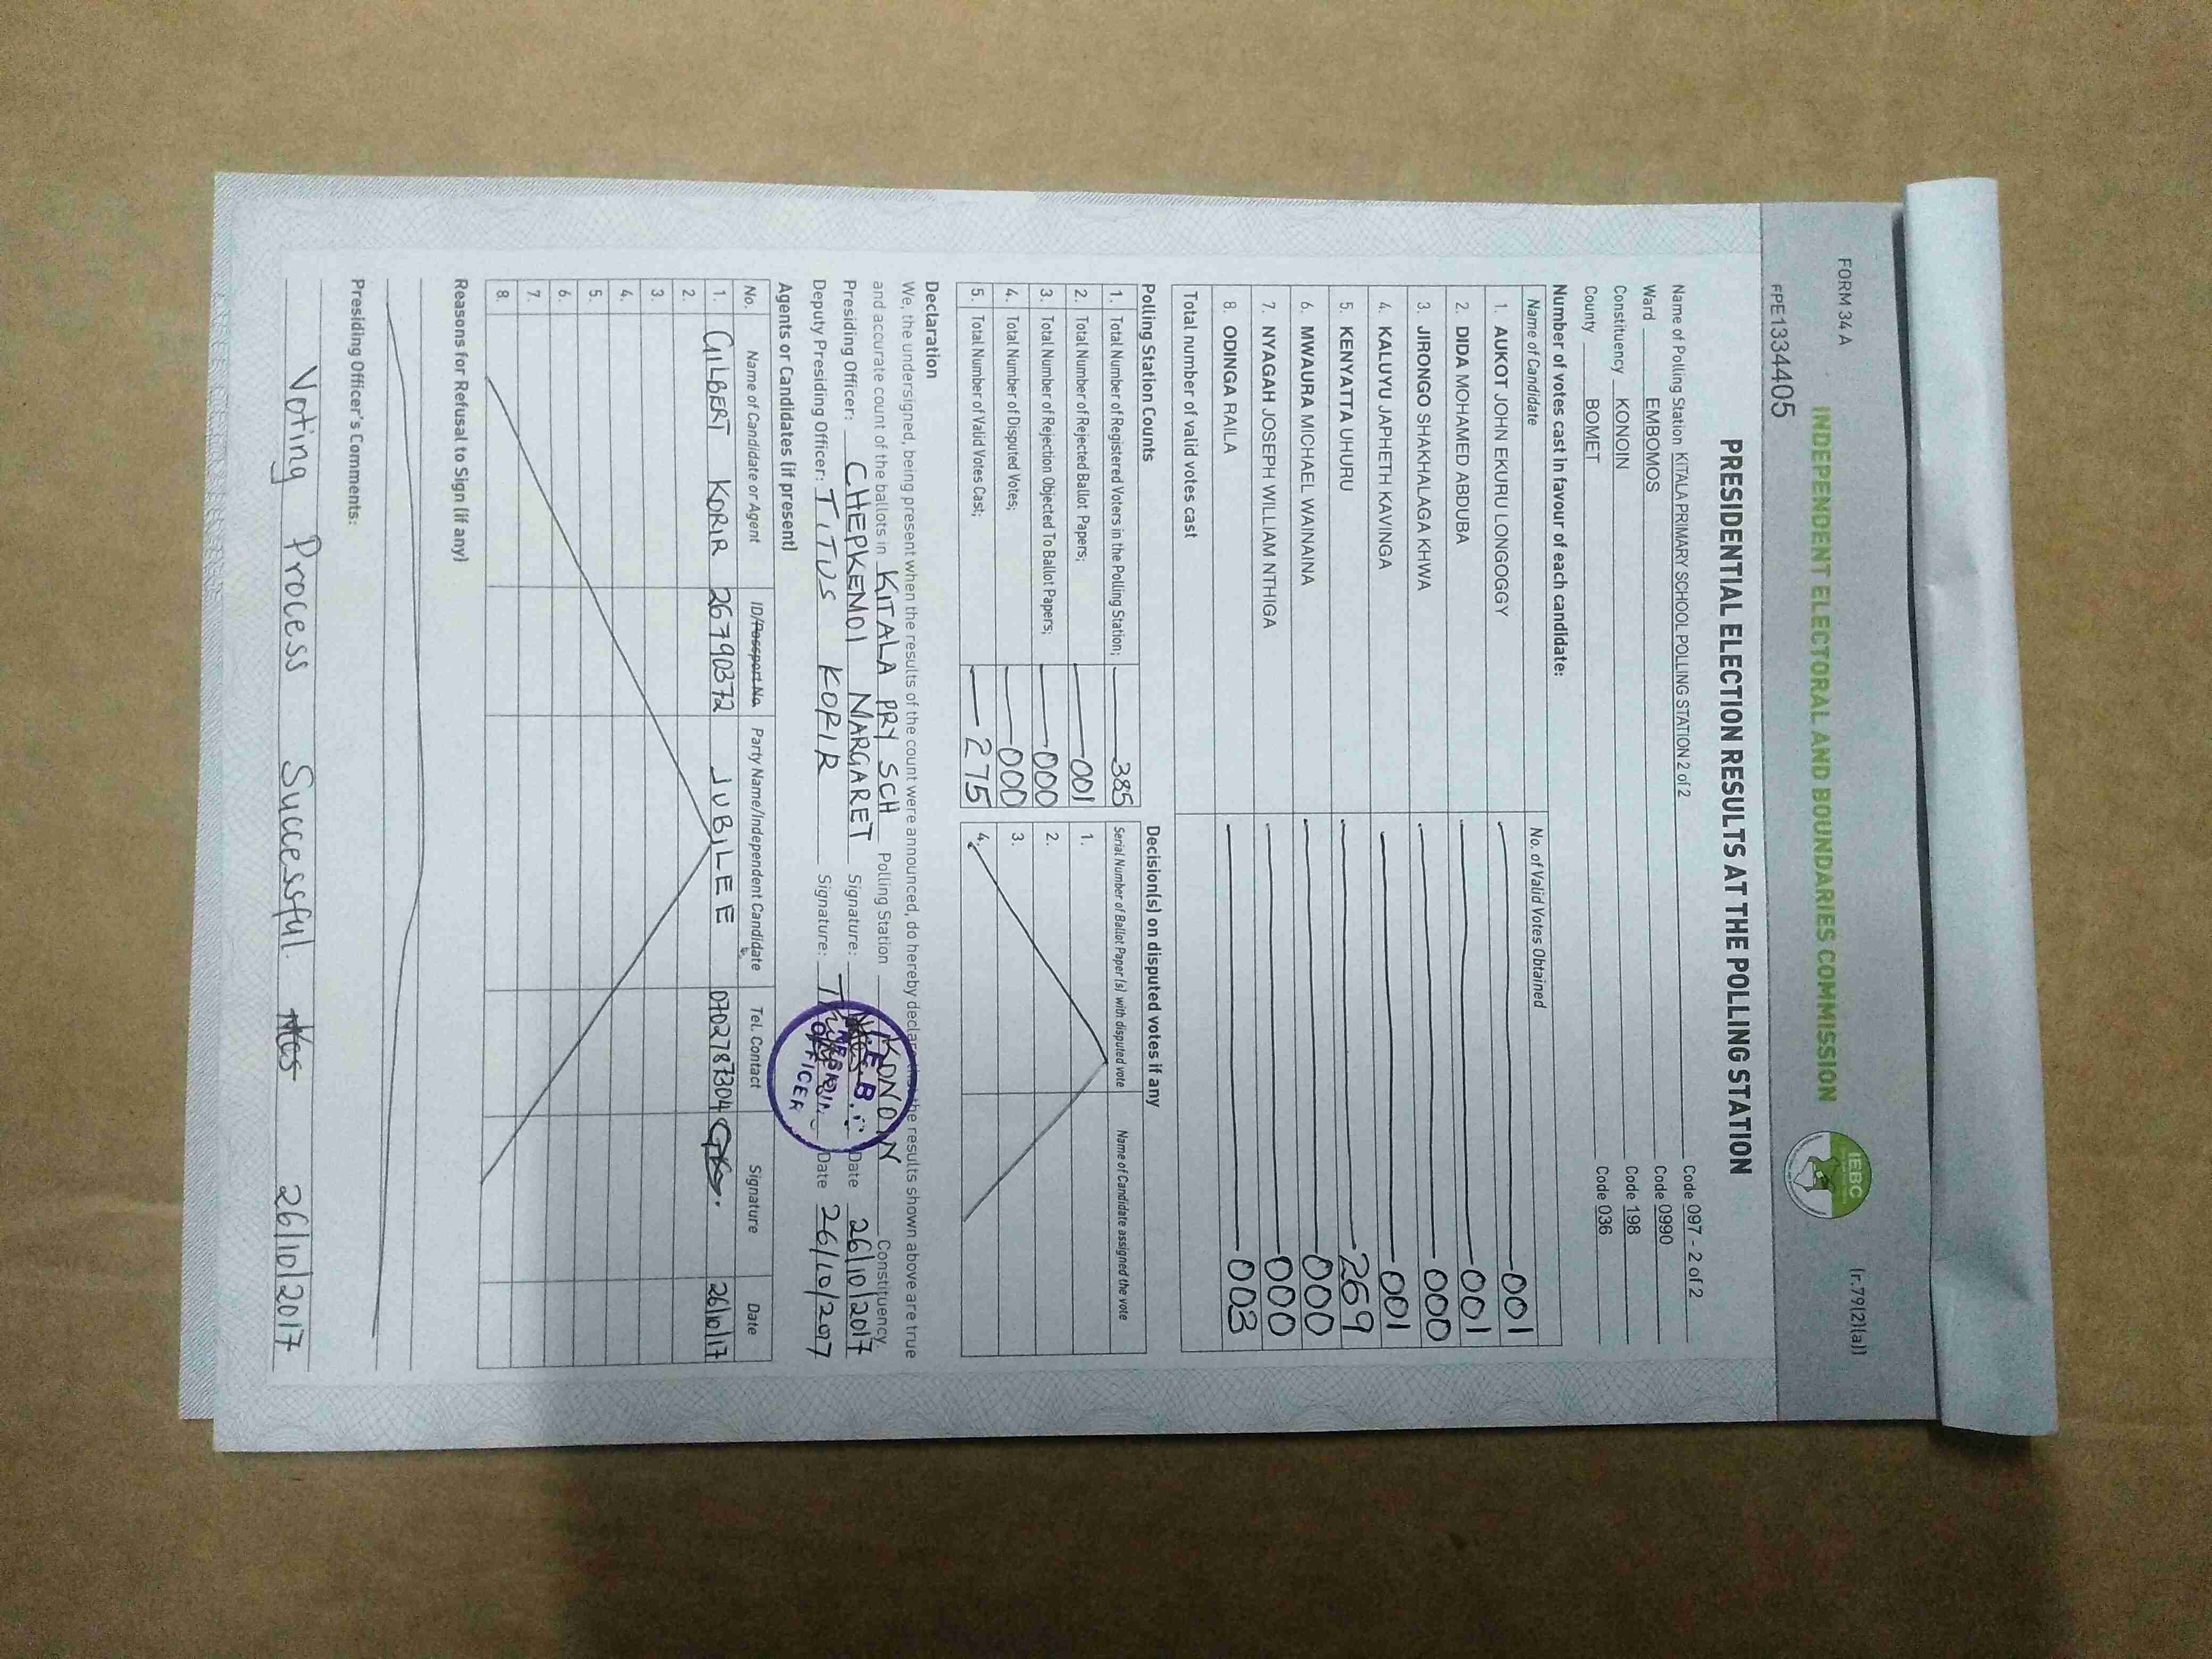 FORM 34 A
(r.79(2)(a))
INDEPENDENT ELECTORAL AND BOUNDARIES COMMISSION
IEBC
FPE1334405
PRESIDENTIAL ELECTION RESULTS AT THE POLLING STATION
Name of Polling Station KITALA PRIMARY SCHOOL POLLING STATION 2 of 2 Code 097 - 2 of 2
Ward EMBOMOS Code 0990
Constituency KONOIN Code 198
County BOMET Code 036
Number of votes cast in favour of each candidate:
Name of Candidate No. of Valid Votes Obtained
1. AUKOT JOHN EKURU LONGOGGY 001
2. DIDA MOHAMED ABDUBA 001
3. JIRONGO SHAKHALAGA KHWA 000
4. KALUYU JAPHETH KAVINGA 001
5. KENYATTA UHURU 269
6. MWAURA MICHAEL WAINAINA 000
7. NYAGAH JOSEPH WILLIAM NTHIGA 000
8. ODINGA RAILA 003
Total number of valid votes cast
Polling Station Counts
1. Total Number of Registered Voters in the Polling Station; 385
2. Total Number of Rejected Ballot Papers; 001
3. Total Number of Rejection Objected To Ballot Papers; 000
4. Total Number of Disputed Votes; 000
5. Total Number of Valid Votes Cast; 275
Decision(s) on disputed votes if any
Serial Number of Ballot Paper(s) with disputed vote Name of Candidate assigned the vote
1.
2.
3.
4.
Declaration
We, the undersigned, being present when the results of the count were announced, do hereby declare that the results shown above are true
and accurate count of the ballots in KITALA PRY SCH Polling Station KONOIN Constituency.
Presiding Officer: CHEPKEMOI MARGARET Signature: Date 26/10/2017
Deputy Presiding Officer: TITUS KORIR Signature: Date 26/10/2017
OFFICER
Agents or Candidates (if present)
No. Name of Candidate or Agent ID/Passport No Party Name/Independent Candidate Tel. Contact Signature Date
1. GILBERT KORIR 26790372 JUBILEE 0702787304 GK. 26/10/17
2.
3.
4.
5.
6.
7.
8.
Reasons for Refusal to Sign (if any)
Presiding Officer's Comments:
Voting Process Successful 26/10/2017